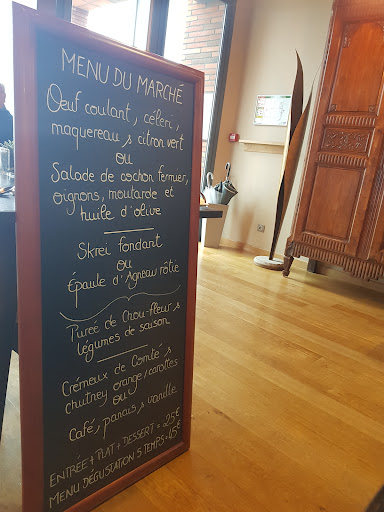 MENU DU MARCHÉ
Œuf coulant, céleri,
maquereau & citron vert
ou
Salade de cochon fermier,
oignons, moutarde et
huile d'olive
Skrei fondant
ou
Épaule d'Agneau rôtie
Purée de Chou-fleur &
légumes de saison
Crémeux de Comté &
chutney orange/carottes
ou
Café, panais & vanille
ENTRÉE + PLAT + DESSERT = 25€
MENU DÉGUSTATION 5 TEMPS = 45€